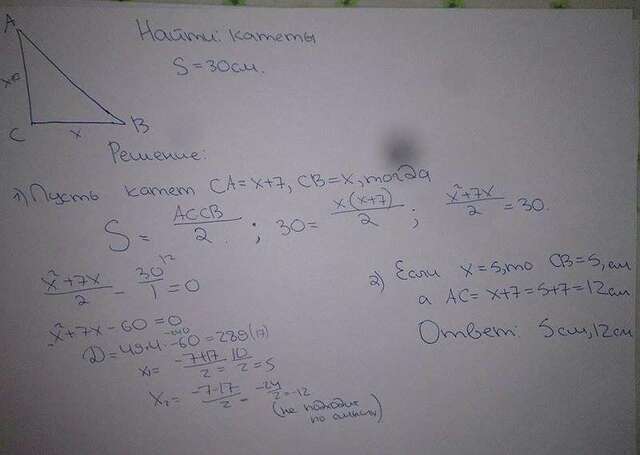 A
Найти: катеты
S = 30 см.
C x B
Решение:
1) Пусть катет CA = x+7, CB = x, тогда
S = ACCB/2 ; 30 = x(x+7)/2 ; x²+7x/2 = 30.
x²+7x/2 - 30/1 = 0
x²+7x-60=0
x₁= -7+17/2 = 10/2 = 5
x₂= -7-17/2 = -24/2 = -12
(не подходит
по смыслу)
2) Если x=5, то CB=5, см
а AC = x+7=5+7=12см
Ответ: 5см, 12см